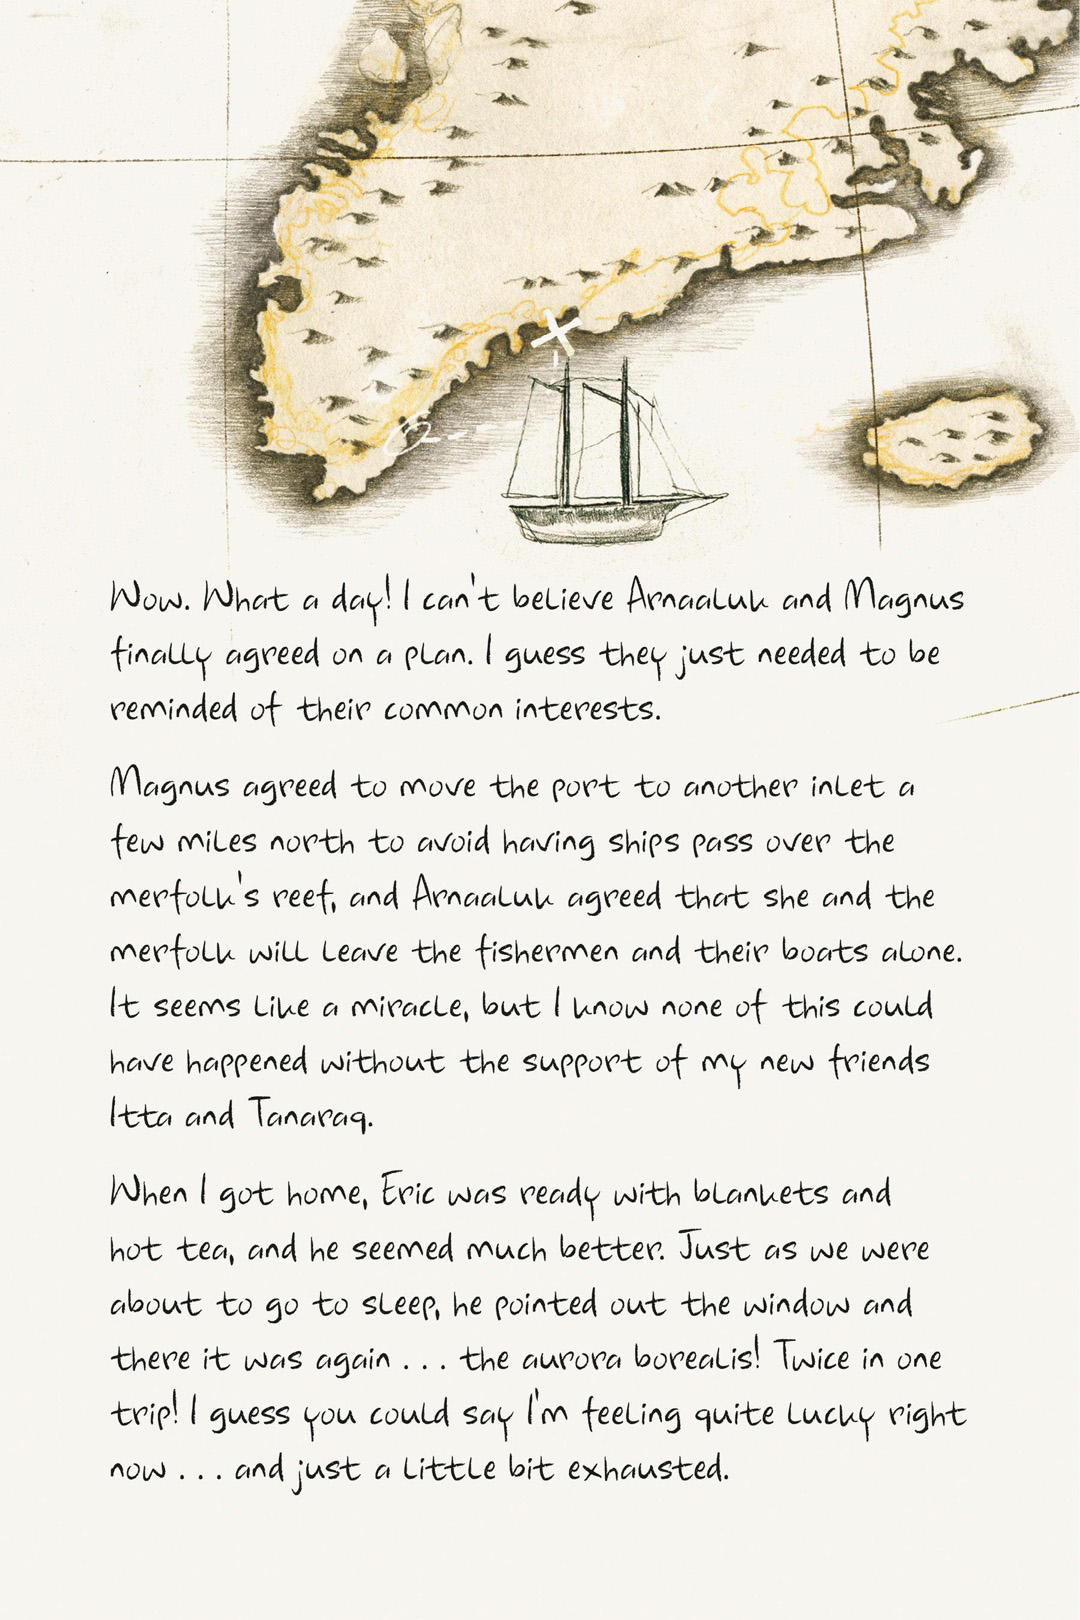 Wow. What a day! I can't believe Arnaaluk and Magnus
finally agreed on a plan. I guess they just needed to be
reminded of their common interests.
Magnus agreed to move the port to another inlet a
few miles north to avoid having ships pass over the
merfolk's reef, and Arnaaluk agreed that she and the
merfolk will leave the fishermen and their boats alone.
It seems like a miracle, but I know none of this could
have happened without the support of my new friends
Itta and Tanaraq.
When I got home, Eric was ready with blankets and
hot tea, and he seemed much better. Just as we were
about to go to sleep, he pointed out the window and
there it was again . . . the aurora borealis! Twice in one
trip! I guess you could say I'm feeling quite lucky right
now . . . and just a little bit exhausted.